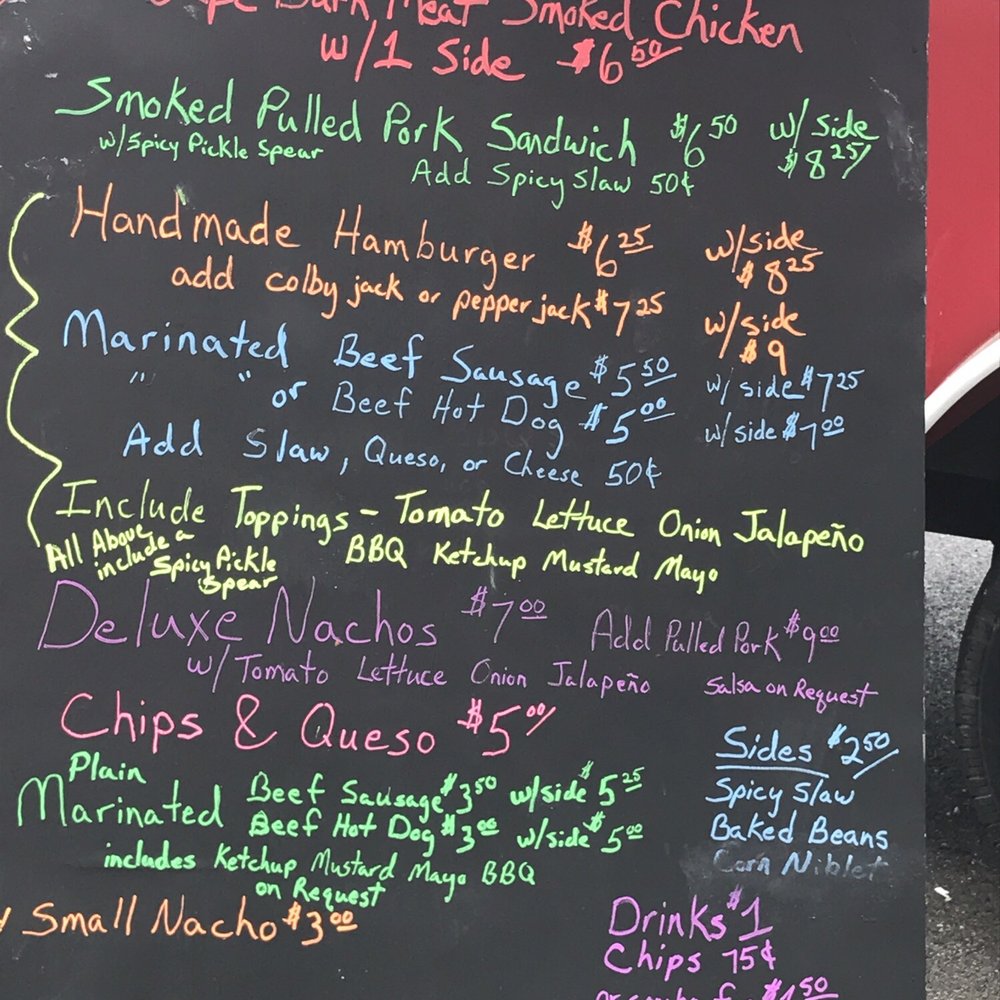 Dark Meat Smoked Chicken
w/1 Side $6 50
Smoked Pulled Pork Sandwich $6 50 w/side $8 25
w/Spicy Pickle Spear
Add Spicy Slaw 50¢
Handmade Hamburger $6 25 w/side $8 25
add colby jack or pepper jack $7 25 w/side $9
Marinated Beef Sausage $5 50 w/side $7 25
" " or Beef Hot Dog $5 00 w/side $7 00
Add Slaw, Queso, or Cheese 50¢
Include Toppings - Tomato Lettuce Onion Jalapeño
BBQ Ketchup Mustard Mayo
All Above include a Spicy Pickle Spear
Deluxe Nachos $7 00 Add Pulled Pork $9 00
w/Tomato Lettuce Onion Jalapeño Salsa on Request
Chips & Queso $5 00
Plain
Marinated Beef Sausage $3 50 w/side $5 25
Beef Hot Dog $3 00 w/side $5 00
includes Ketchup Mustard Mayo BBQ
on Request
Small Nacho $3 00
Sides $2 50
Spicy Slaw
Baked Beans
Corn Niblet
Drinks $1
Chips 75¢
$1 50